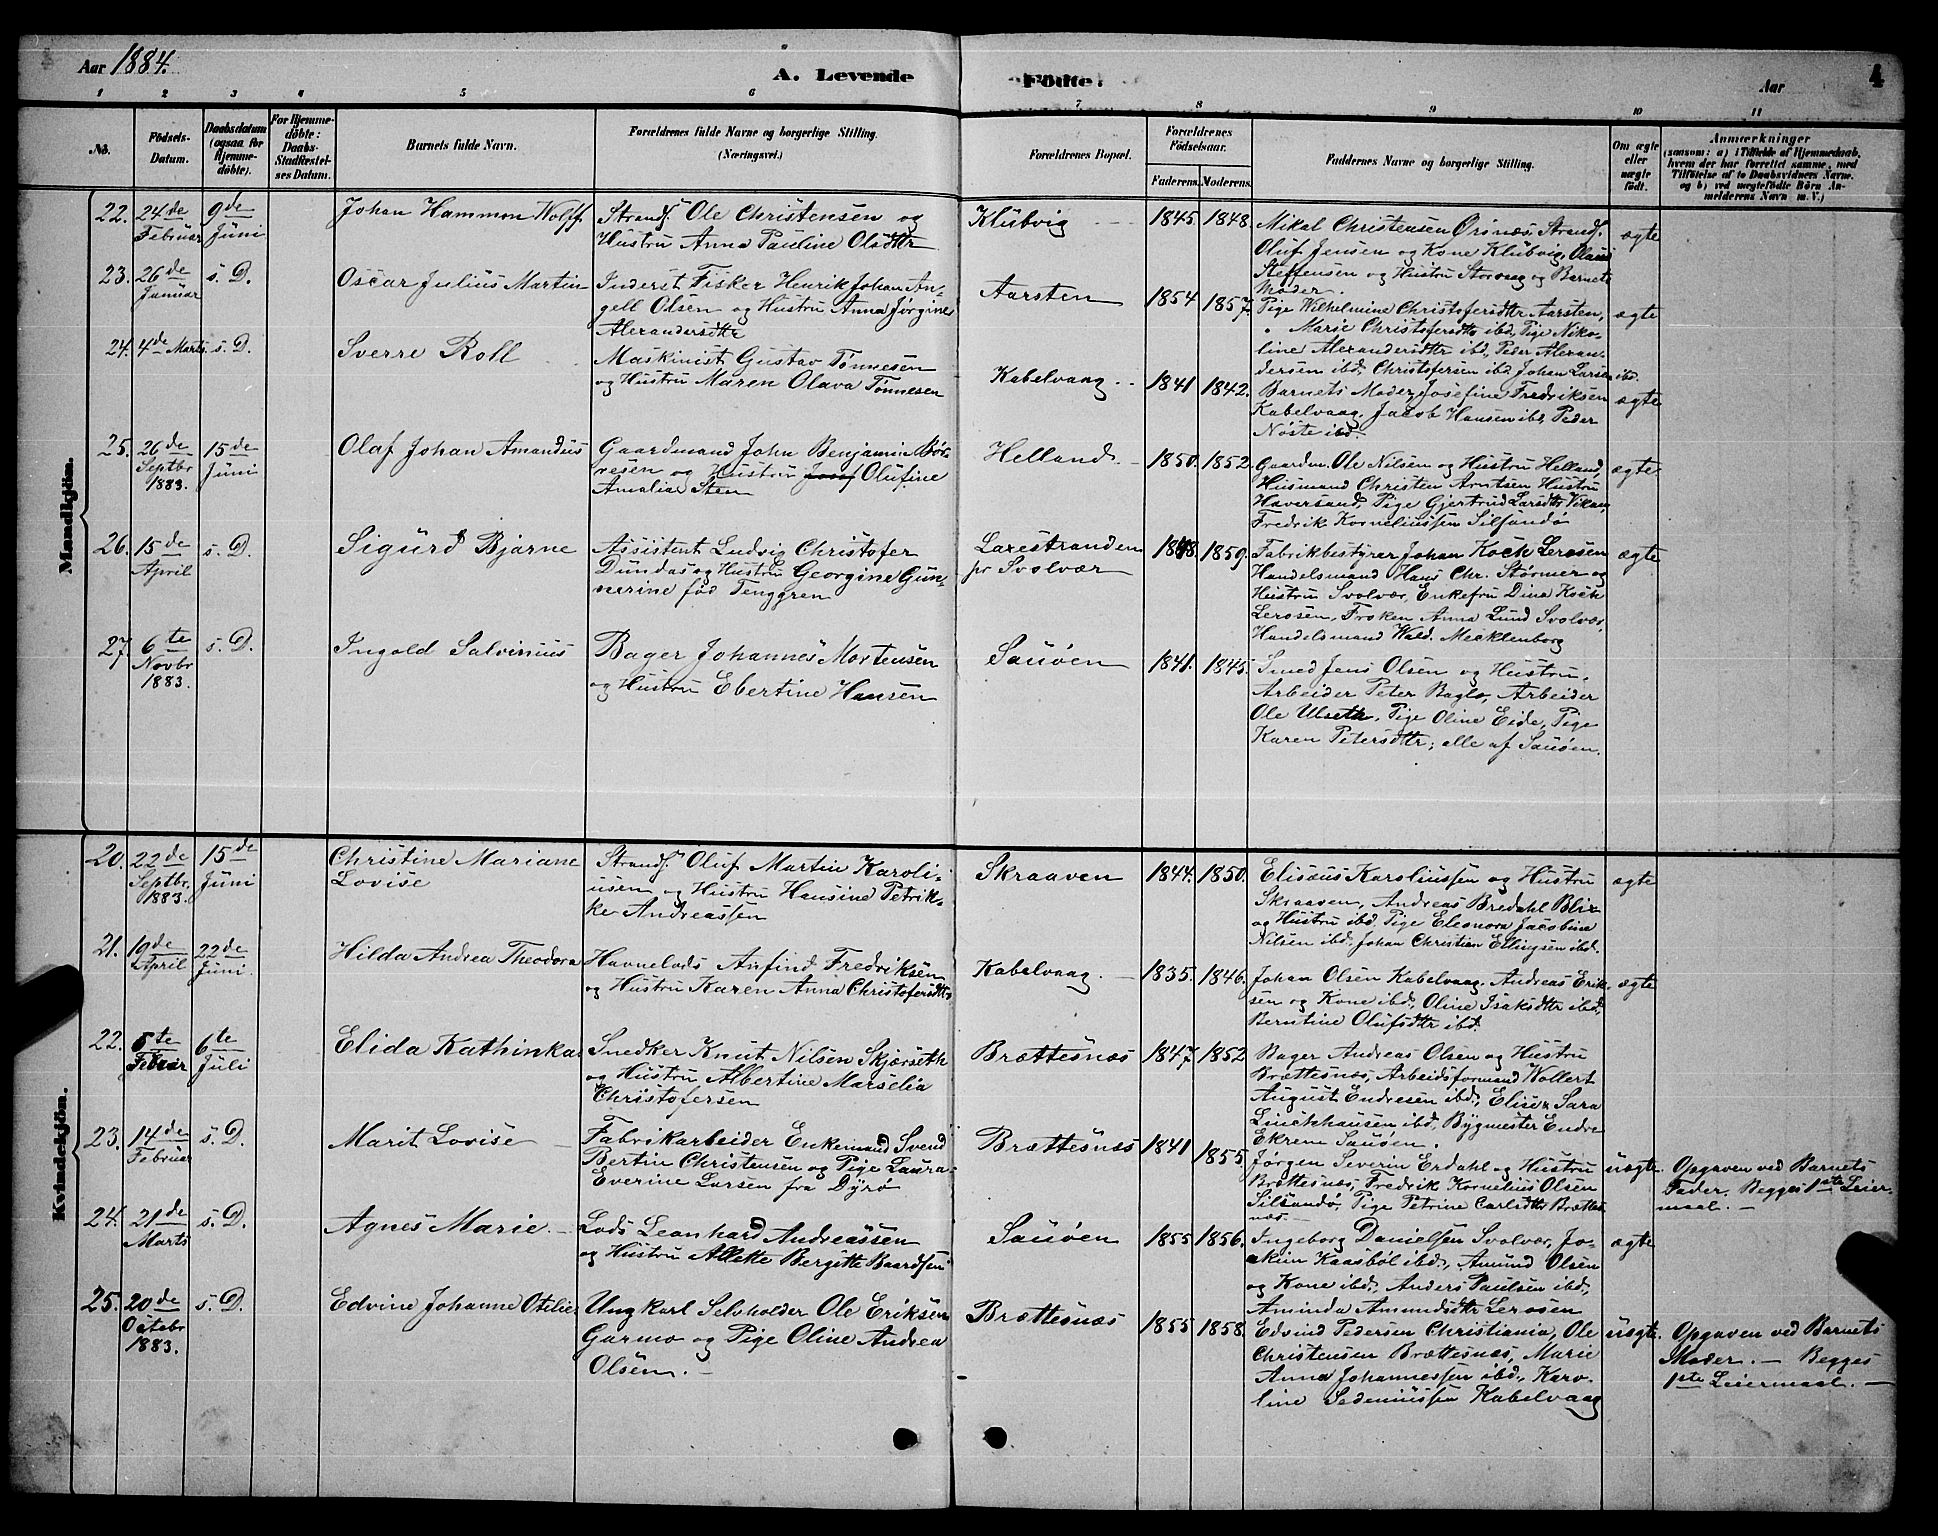 Aar 1884.
A. Levende Födte.
Aar
4
1 2 3 4 5 6 7 8 9 10 11
No.
Födsels-Datum.
Daabsdatum (ogsaa for Hjemme-döbte).
For Hjemme-döbte: Daabs-Stadfæstel-ses Datum.
Barnets fulde Navn.
Forældrenes fulde Navne og borgerlige Stilling. (Næringsvei.)
Forældrenes Bopæl.
Forældrenes Födselsaar.
Faderens. Moderens.
Faddernes Navne og borgerlige Stilling.
Om ægte eller uægte födt.
Anmærkninger
(saasom: a) i Tilfælde af Hjemmedaab, hvem der har forrettet samme, med Tilföielse af to Daabsvidners Navne, og b) ved uægtefödte Börn An-melderens Navn m. V.)
Mandkjön.
22. 24de Februar
9de Juni
Johan Hammon Wolff
Strands. Ole Christensen og
Hustru Anna Pauline Olsdttr
Klubvig
1845. 1848.
Mikal Christensen Ørsnæs Strands.
Oluf Jensen og Kone Klubvig, Olaus
Steffensen og Hustru Storvag og Barnets
Moder.
ægte
23. 26de Januar
s. D.
Oscar Julius Martin
Inderst Fisker Henrik Johan An-
gell Olsen og Hustru Anna Jørgine
Alexandersdttr
Aarsten
1854 1857.
Pige Wilhelmine Christofersdttr Aarsten,
" Marie Christofersdttr ibd, Pige Niko-
line Alexandersdttr ibd, Peder Alexan-
dersen ibd, Christofersen ibd Johan Larsen ibd.
ægte
24. 4de Marts
s. D.
Sverre Roll
Maskinist Gustav Tønnesen
og Hustru Maren Olava Tønnesen
Kabelvaag
1841 1842.
Barnets Moder, Josefine Fredriksen
Kabelvaag, Jacob Hansen ibd, Peder
Nøste ibd.
ægte
25. 26de Septbr 1883.
15de Juni
Olaf Johan Amandus
Gaardmand John Benjamin Bør-
resen og Hustru Olufine
Amalia Sten
Helland
1850. 1852.
Gaardm. Ole Nilsen og Hustru Helland,
Husmand Christen Arntsen Hustru
Haversand, Pige Gjertrud Larsdttr Vikan,
Fredrik Korneliussen Silsandø
ægte
26. 15de April
s. D.
Sigurd Bjarne
Assistent Ludvig Christofer
Dundas og Hustru Georgine Gun-
nerine fød Tenggren
Laxestranden
pr Svolvær
1848. 1859.
Fabrikbestyrer Johan Kock Lerosen
Handelsmand Hans Chr. Størmer og
Hustru Svolvær, Enkefru Dina Kock
Lerosen, Frøken Anna Lund Svolvær,
Handelsmand Wald. Mecklenborg
ægte
27. 6te Novbr 1883.
s. D.
Ingold Salvinius
Bager Johannes Mortensen
og Hustru Ebertine Hansen
Sauøen
1841. 1845.
Smed Jens Olsen og Hustru,
Arbeider Peter Baglo, Arbeider
Ole Ulseth, Pige Oline Eide, Pige
Karen Petersdttr; alle af Sauøen.
Kvindekjön.
20. 22de Septbr. 1883.
15de Juni
Christine Mariane
Lovise
Strands. Oluf Martin Karoli-
usen og Hustru Hansine Petrik-
ke Andreassen
Skraaven
1844. 1850.
Elisæus Karoliussen og Hustru
Skraaven, Andreas Bredahl Blix
og Hustru ibd, Pige Eleonora Jacobine
Nilsen ibd, Johan Christian Ellingsen ibd.
ægte
21. 19de April
22de Juni.
Hilda Andrea Theodora
Havnelods Anfind Fredriksen
og Hustru Karen Anna Christofersdttr
Kabelvaag.
1835. 1846.
Johan Olsen Kabelvaag, Andreas Erik-
sen og Kone ibd., Oline Isaksdttr ibd,
Berntine Olufsdttr ibd.
ægte
22. 5te Febuar
6te Juli
Elida Kathinka
Snedker Knut Nilsen Skjærseth
og Hustru Albertine Marselia
Christofersen
Brættesnæs
1847. 1852
Bager Andreas Olsen og Hustru
Brættesnæs, Arbeidsformand Wollert
August Endresen ibd., Elise & Sara
Linckhausen ibd, Bygmester Endre
Ekrem Sauøen.
23. 14de Februar
s. D.
Marit Lovise
Fabrikarbeider Enkemand Svend
Bertin Christensen og Pige Laura
Everine Larsen fra Dyrø
Brættesnæs
1841 1855.
Jørgen Severin Erdahl og Hustru
Brættesnæs, Fredrik Kornelius Olsen
Silsandø, Pige Petrine Carlsdttr Brættes-
næs.
uægte.
Opgaven ved Barnets
Fader. Begges 1ste Leier-
maal.
24. 21de Marts
s. D.
Agnes Marie.
Lods Leonhard Andreassen
og Hustru Allette Bergitte Baardsen
Sauøen
1855 1856.
Ingeborg Danielsen Svolvær, Jo-
akim Kaasbøl ibd., Amund Olsen
og Kone ibd., Anders Paulsen ibd.,
Aminda Amundsdttr Lerosen
ægte
25. 20de Octobr 1883.
s. D.
Edvine Johanne Otelie
Ungkarl Selvholder Ole Eriksen
Garmo og Pige Oline Andrea
Olsen.
Brættesnæs
1855 1858.
Edvind Pedersen Christiania, Ole
Christensen Brættesnæs, Marie
Anna Johannessen ibd., Karo-
line Sedeniussen Kabelvaag
uægte.
Opgaven ved Barnets
Moder. Begges
1ste Leiermaal.